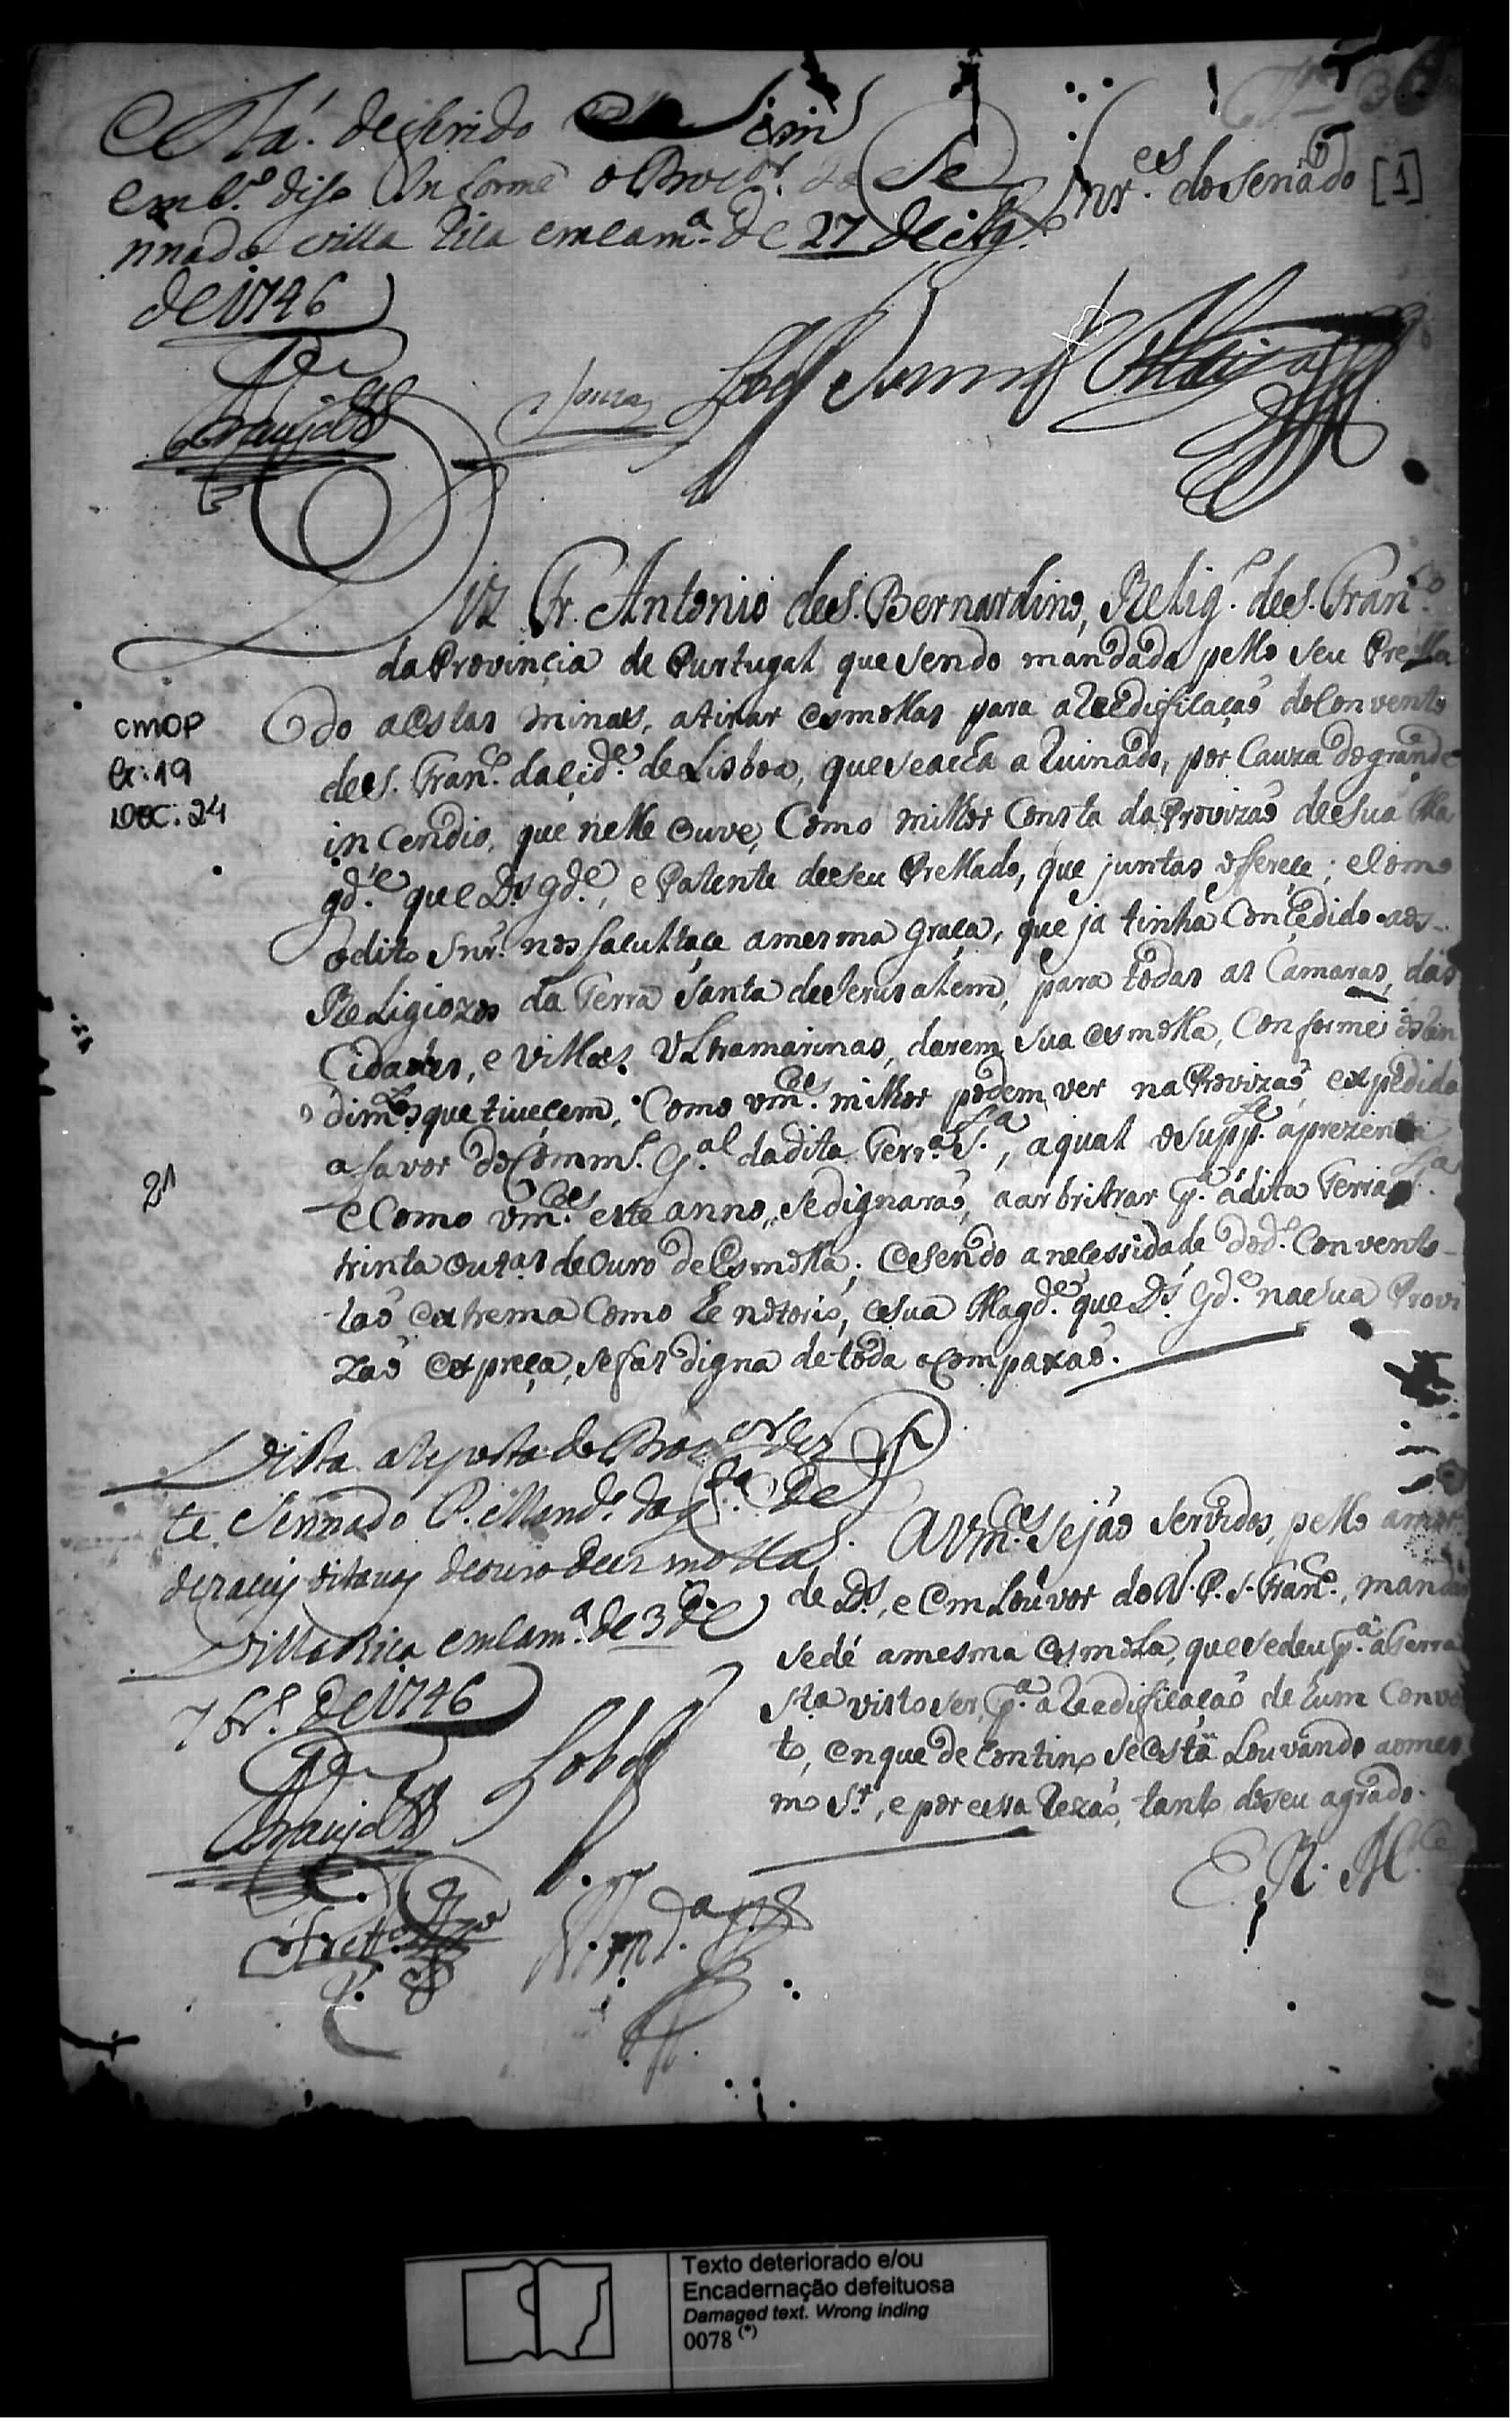 Está deferido Sim
emb.º digo Informe o Procor. do Se
nnado Villa Rica em Cam.ª de 27 de Ag.º
de 1746
Araujo
Souza Lobo
Snr.es do Senado [1]
Diz Fr. Antonio de S. Bernardino, Relig.º de S. Fran.co
da Provincia de Purtugal que sendo mandada pello seu Prella
do a estas minaes, a tirar esmollas para a Reedificação do Convento
de S. Fran.co da Cid.e de Lisboa, que se acca a Ruinado, por Cauza do grande
incendio, que nelle Ouve, Como milhor Consta da Provizaõ de sua Ma
gd.e que D.s gd.e, e Patente de seu Prellado, que juntas offerece; e como
o dito Snr. nos facultace a mesma graça, que ja tinha Concedido aos
Religiozos da Terra Santa de Jerusalem, para todas as Camaras, das
Cidades, e Villaes Ultramarinas, darem sua esmolla, Conforme os Ren
dim.tos que tiveçem, Como vm.ces milhor podem ver na Provizaõ, expedida
a favor do Comms.º G.al da dita Terr.a S.ta, a qual o supp.te aprezenta
e Como vm.ces este anno, se dignaraõ, a arbritrar p.a a dita Terra S.ta
trinta outas de Ouro de Esmolla; e sendo a necessidade do d.º Convento
taõ extrema Como he notorio, e sua Magd.e que D.s Gd.e na sua Provi
zaõ expreça, se faz digna de toda a Compaxaõ.
CMOP
Cx: 19
DOC: 24
21
Vista a Reposta do Procor. des
te Sennado P. Mand.º da q.ta de
dezaceis oitavas de ouro de esmolla
Villa Rica em Cam.ª de 3 de
7br.º de 1746
Araujo
Lobo
A Vm.ces sejão servidos, pello amor
de D.s, e em Louvor do N. P. S. Fran.co, mandar
se dé a mesma esmola, que se deu p.a a Terra
S.ta visto ser, p.a a Reedificação de hum Conven
to, en que de Contino se está Louvando ao mes
mo S.r, e por essa Rezaõ, tanto do seu agrado.
E. R. M.ce
Texto deteriorado e/ou
Encadernação defeituosa
Damaged text. Wrong inding
0078 (*)